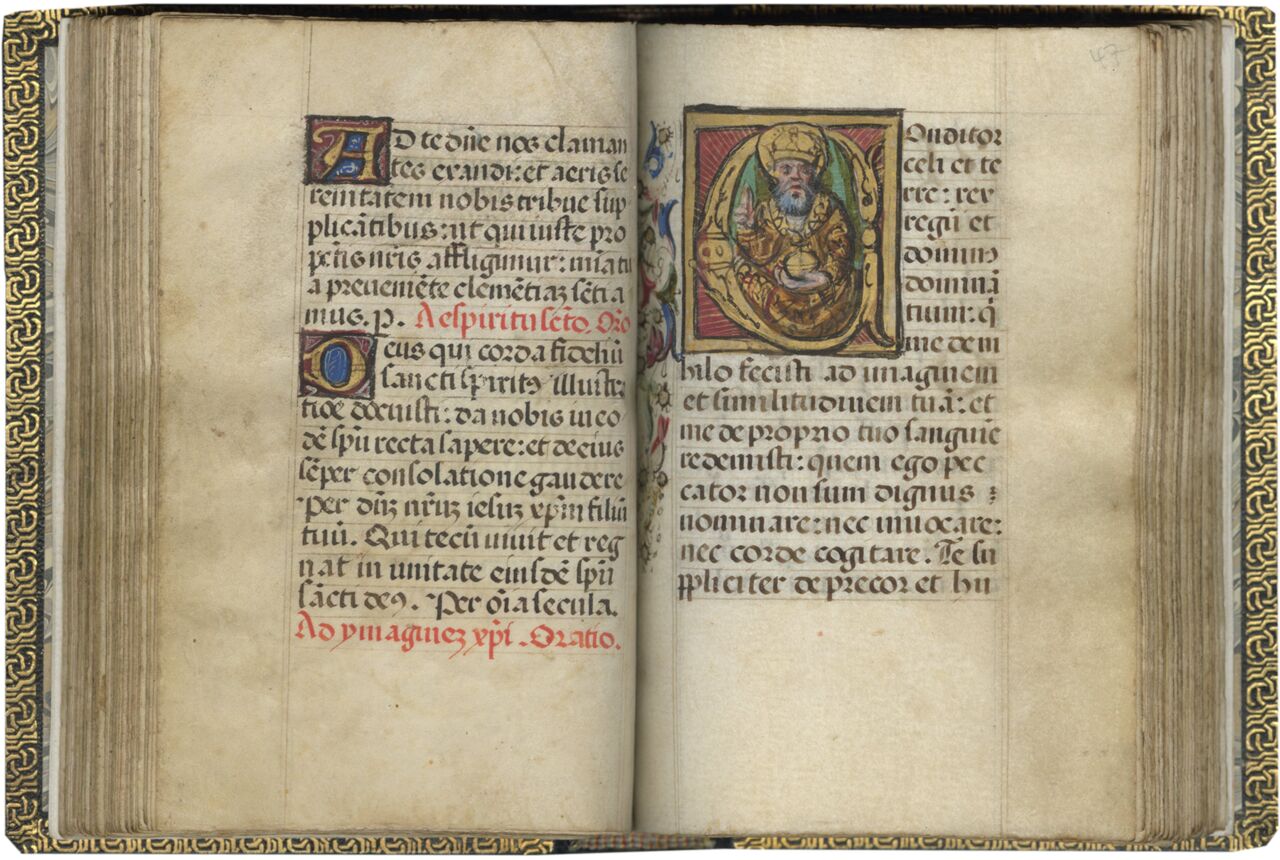 AD te dn̄e nos claman
tes exaudi: et aeris se
renitatem nobis tribue sup
plicātibus: ut qui iuste pro
pctīs nr̄is affligimur: mīa tu
a preueniēte clemētiaꝫ sētia
mus. p. A espiritu sctō. Orō
Deus qui corda fideliū
sancti spiritꝰ illustra
tiōe docuisti: da nobis in eo
dē sp̄u recta sapere: et de eius
sēper consolatione gaudere
Per dn̄ꝫ nr̄uꝫ iesuꝫ xp̄m filiū
tuū. Qui tecū uiuit et reg
nat in unitate eiusdē sp̄u
sācti deꝰ. Per oīa secula.
Ad ymagineꝫ xp̄i. Oratio.
47
Conditor
celi et te
rre: rex
regū et
dominꝰ
dominā
tium: q̄
me de ni
hilo fecisti ad imaginem
et similitudinem tuā: et
me de proprio tuo sanguine
redemisti: quem ego pec
cator non sum dignus
nominare: nec inuocare:
nec corde cogitare. Te su
ppliciter deprecor et hu